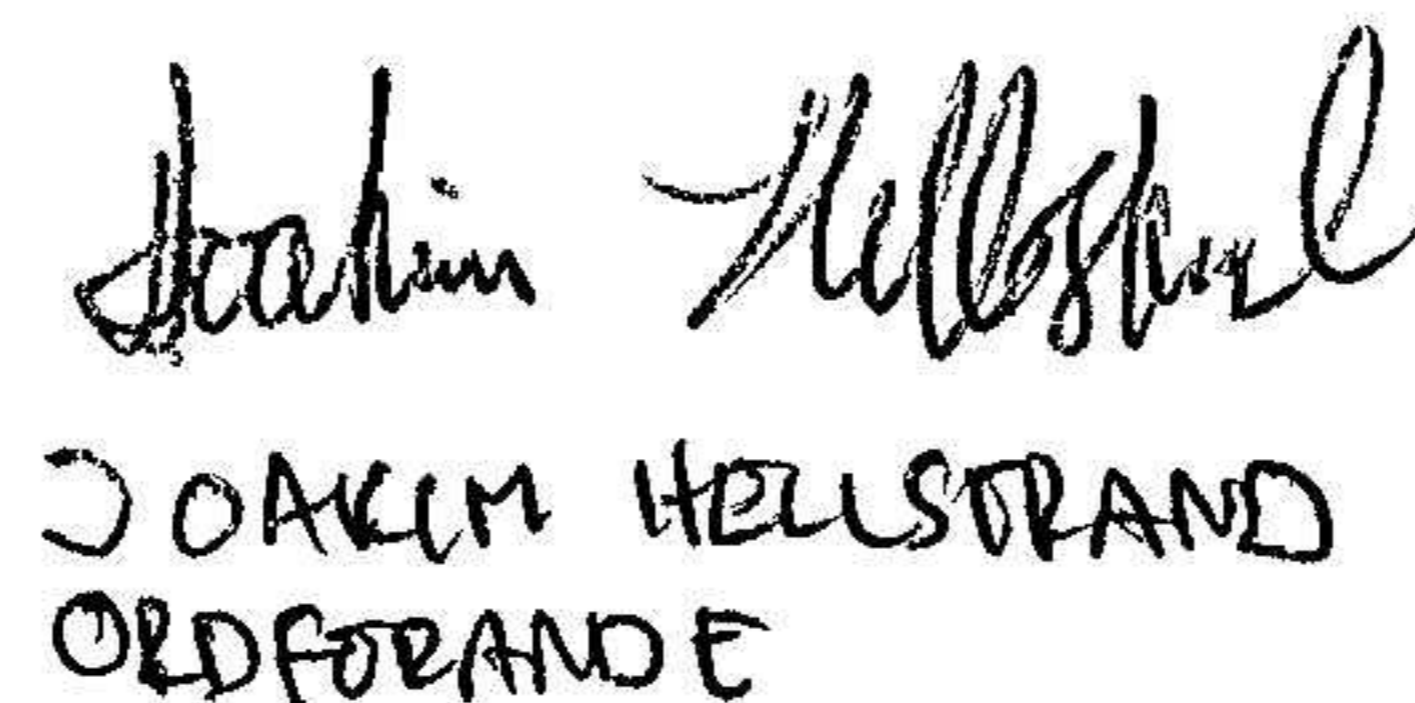 Joakim Hellstrand
JOAKIM HELLSTRAND
ORDFORANDE